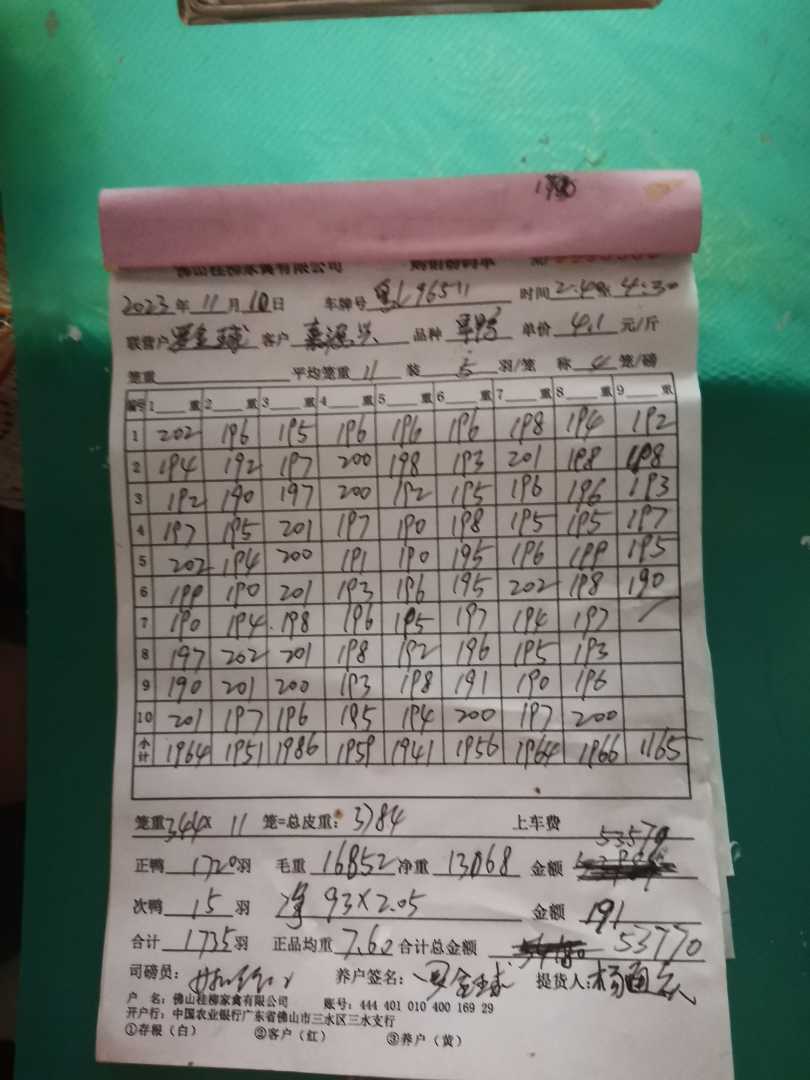 佛山桂柳家禽有限公司
2023年11月10日 车牌号 粤L96511 时间2:40 4:30
联营户 金球 客户 品种 单价 4.1 元/斤
笼重 平均笼重 11 装 5 羽/笼 称 4 笼/磅
编号 1 重 2 重 3 重 4 重 5 重 6 重 7 重 8 重 9 重
1 202 196 195 196 196 196 198 194 192
2 194 192 197 200 198 193 201 198 198
3 192 190 197 200 192 195 196 196 193
4 197 195 201 197 190 198 195 195 197
5 202 194 200 191 190 195 196 199 195
6 199 190 201 193 196 195 202 198 190
7 190 194 198 196 195 197 194 197
8 197 202 201 198 192 196 195 193
9 190 201 200 193 198 191 190 196
10 201 197 196 195 194 200 197 200
小计 1964 1951 1986 1959 1941 1956 1964 1966 1165
笼重344× 11 笼=总皮重:3784 上车费
正鸭 1720羽 毛重 16852 净重 13068 金额 53579
次鸭 15 羽 净 93×2.05 金额 191
合计 1735羽 正品均重 7.60 合计总金额 53770
司磅员: 养户签名: 金球 提货人:杨
户 名:佛山桂柳家禽有限公司 账号:444 401 010 400 169 29
开户行:中国农业银行广东省佛山市三水区三水支行
①存根(白) ②客户(红) ③养户(黄)